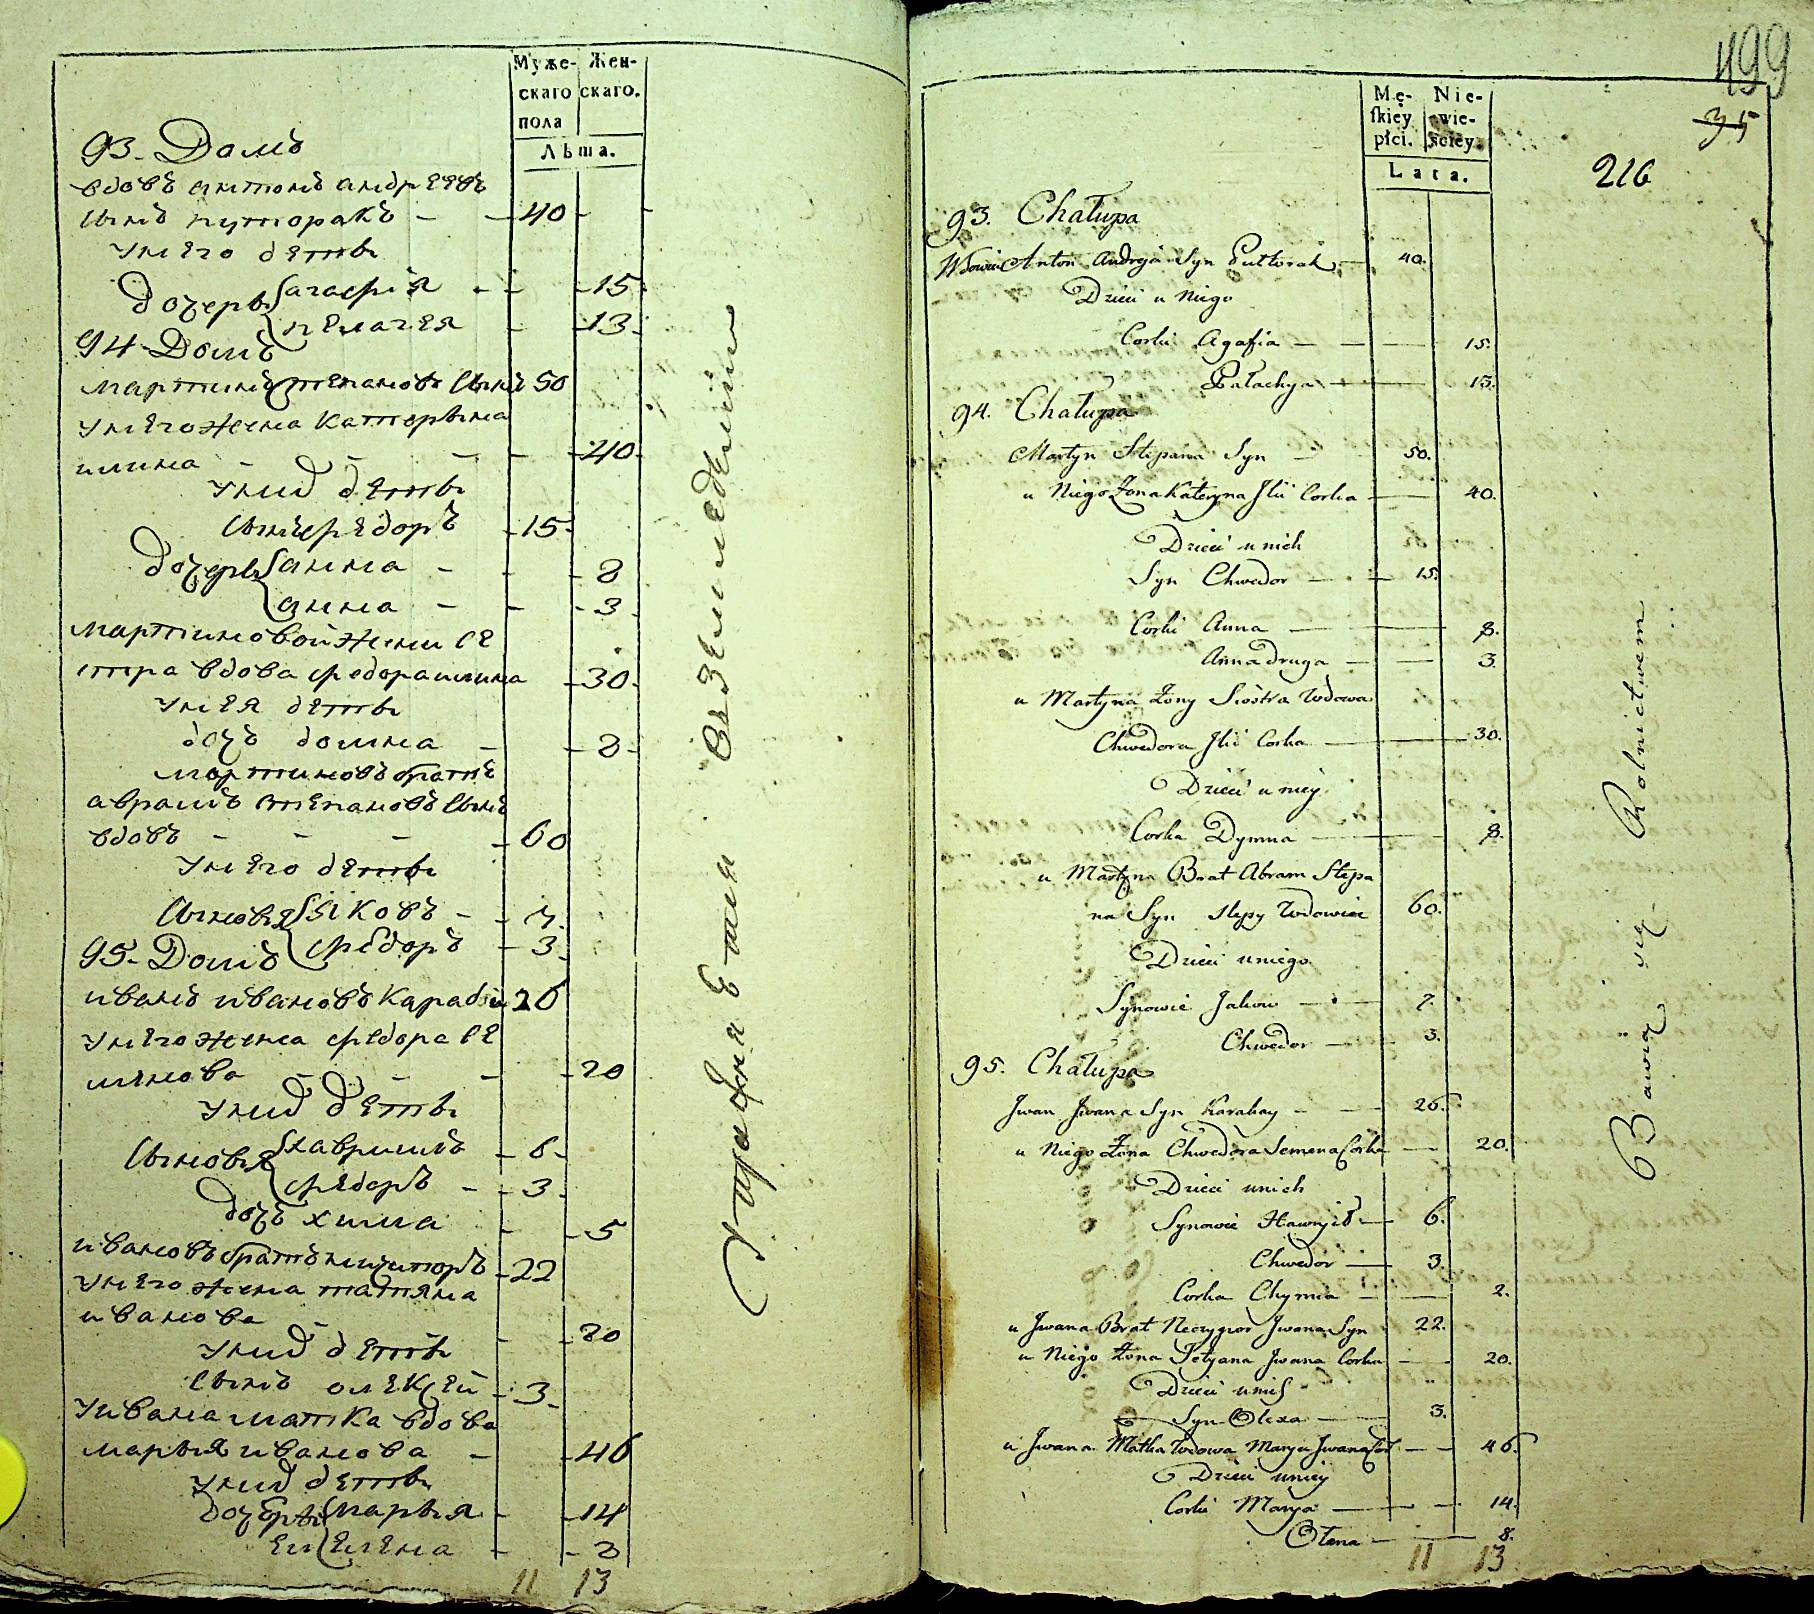 Муже- Жен-
скаго скаго.
пола
Лѣта.
93. Домъ
вдовъ антонъ андрѣевъ
сынъ путоракъ - - 40
унего дети
дочери агафия - - 15
пелагея - 13
94 Домъ
мартинъ степановъ сынъ 50
унего жена катерына
илина - - - 40
унид дети
сынъ федоръ 15
дочери анна - - 8
анна - - 3
мартиновой жени се
стра вдова федора илина 30
унея дети
дочъ домна - 8
мартиновъ братъ
аврамъ степановъ сынъ
вдовъ - - - 60
унего дети
сыновя яковъ - - 7
федоръ - 3
95. Домъ
иванъ ивановъ карабей 26
унего жена федора се
менова - - - 20
унид дети
сыновя гавриилъ - 6
федоръ - - 3
дочъ химна - 5
ивановъ братъ ничипоръ 22
унего жена татяна
иванова - - 20
унид дети
сынъ олексей - 3
уивана матка вдова
марья иванова - 46
унид дети
дочери марья - 14
елена - 8
11 13
Упражняется вземледелии
499
35
216
Mę- Nie-
ſkiey wie-
płci. ściey.
Lata.
93. Chałupa
Wdowiec Anton Andreja Syn Puttorak - 40.
Dzieci u Niego
Corki Agafia - - 15.
Pałachya - 13.
94. Chałupa
Martyn Stepana Syn - 50.
u Niego Żona Kateryna Jlii Corka - 40.
Dzieci u nich
Syn Chwedor - - 15.
Corki Anna - 8.
Anna druga - - 3.
u Martyna Żony Siostra Wdowa
Chwedora Jlii Corka - 30.
Dzieci u niey
Corka Dymna - 8.
u Martyna Brat Abram Stepa
na Syn slepy Wdowiec 60.
Dzieci uniego
Synowie Jakow - - 7.
Chwedor - 3.
95. Chałupa
Jwan Jwana Syn Karabay - - 26.
u Niego Żona Chwedora Semena Corka - 20.
Dzieci unich
Synowie Hawryło - 6.
Chwedor - 3.
Corka Chymna - - 2.
u Jwana Brat Neczypor Jwana Syn 22.
u Niego Żona Tetyana Jwana Corka - 20.
Dzieci unich
Syn Olexa - 3.
u Jwana Matka Wdowa Marya Jwana Cor - - 46.
Dzieci uniey
Corki Marya - - 14.
Ołena - - 8.
11 13
Bawią się Rolnictwem